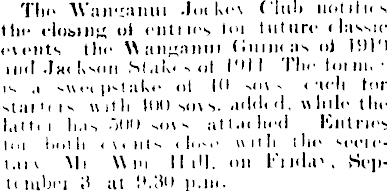 The Wanganui Jockey Club notifies
the closing of entries for future classic
events, the Wanganui Guineas of
and Jackson Stakes of 1911 The former
is a sweepstake of 10 sovs. each for
starters with 400 sovs. added, while the
latter has 500 sovs attached Entries
for both events close with the secre-
tary Mr Wm Hall, on Friday, Sep-
tember 3 at 9.30 p.m.